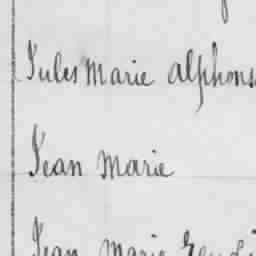 Jules Marie Alphons
Jean Marie
Jean Marie